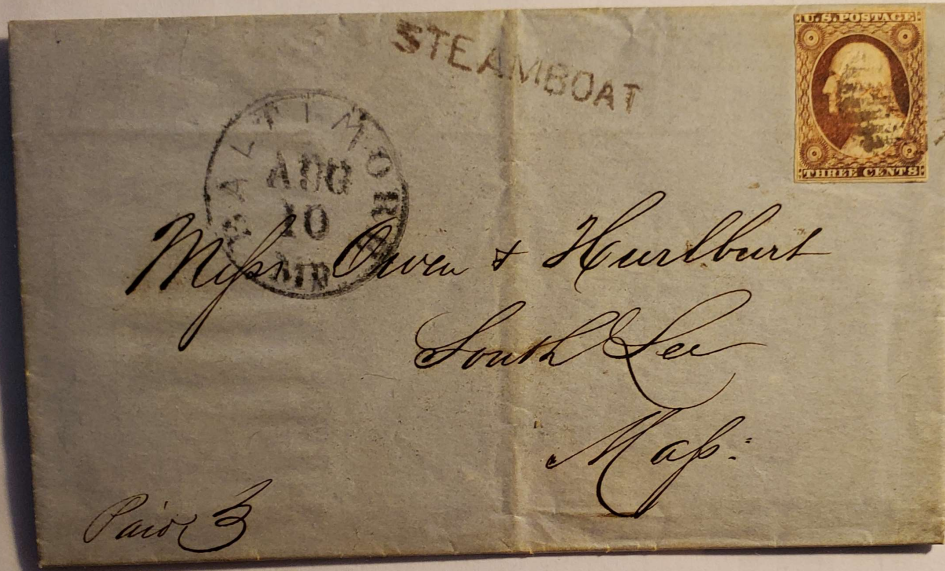 STEAMBOAT
U.S. POSTAGE
THREE CENTS
BALTIMORE
AUG
10
MD.
Mess Owen & Hurlburt
South Lee
Mass:
Paid 3